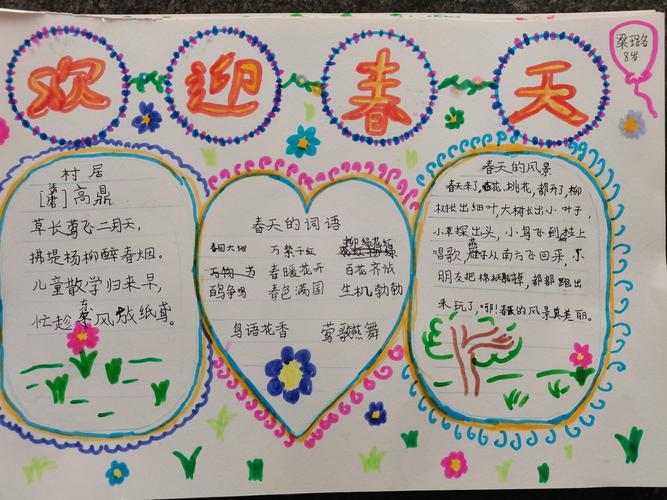 欢迎春天
梁珺
8岁
村居
[清]高鼎
草长莺飞二月天,
拂堤杨柳醉春烟。
儿童散学归来早,
忙趁东风放纸鸢。
春天的词语
春回大地 万紫千红 柳绿花红
万物 春暖花开 百花齐放
百鸟争鸣 春色满园 生机勃勃
鸟语花香 莺歌燕舞
春天的风景
春天来了,桃花,都开了,柳
树长出细叶,大树长出小叶子,
小草探出头,小鸟飞到枝上
唱歌,燕子从南方飞回来,小
朋友把棉袄脱掉,都都跑出
来玩了,呀!春天的风景真美丽。